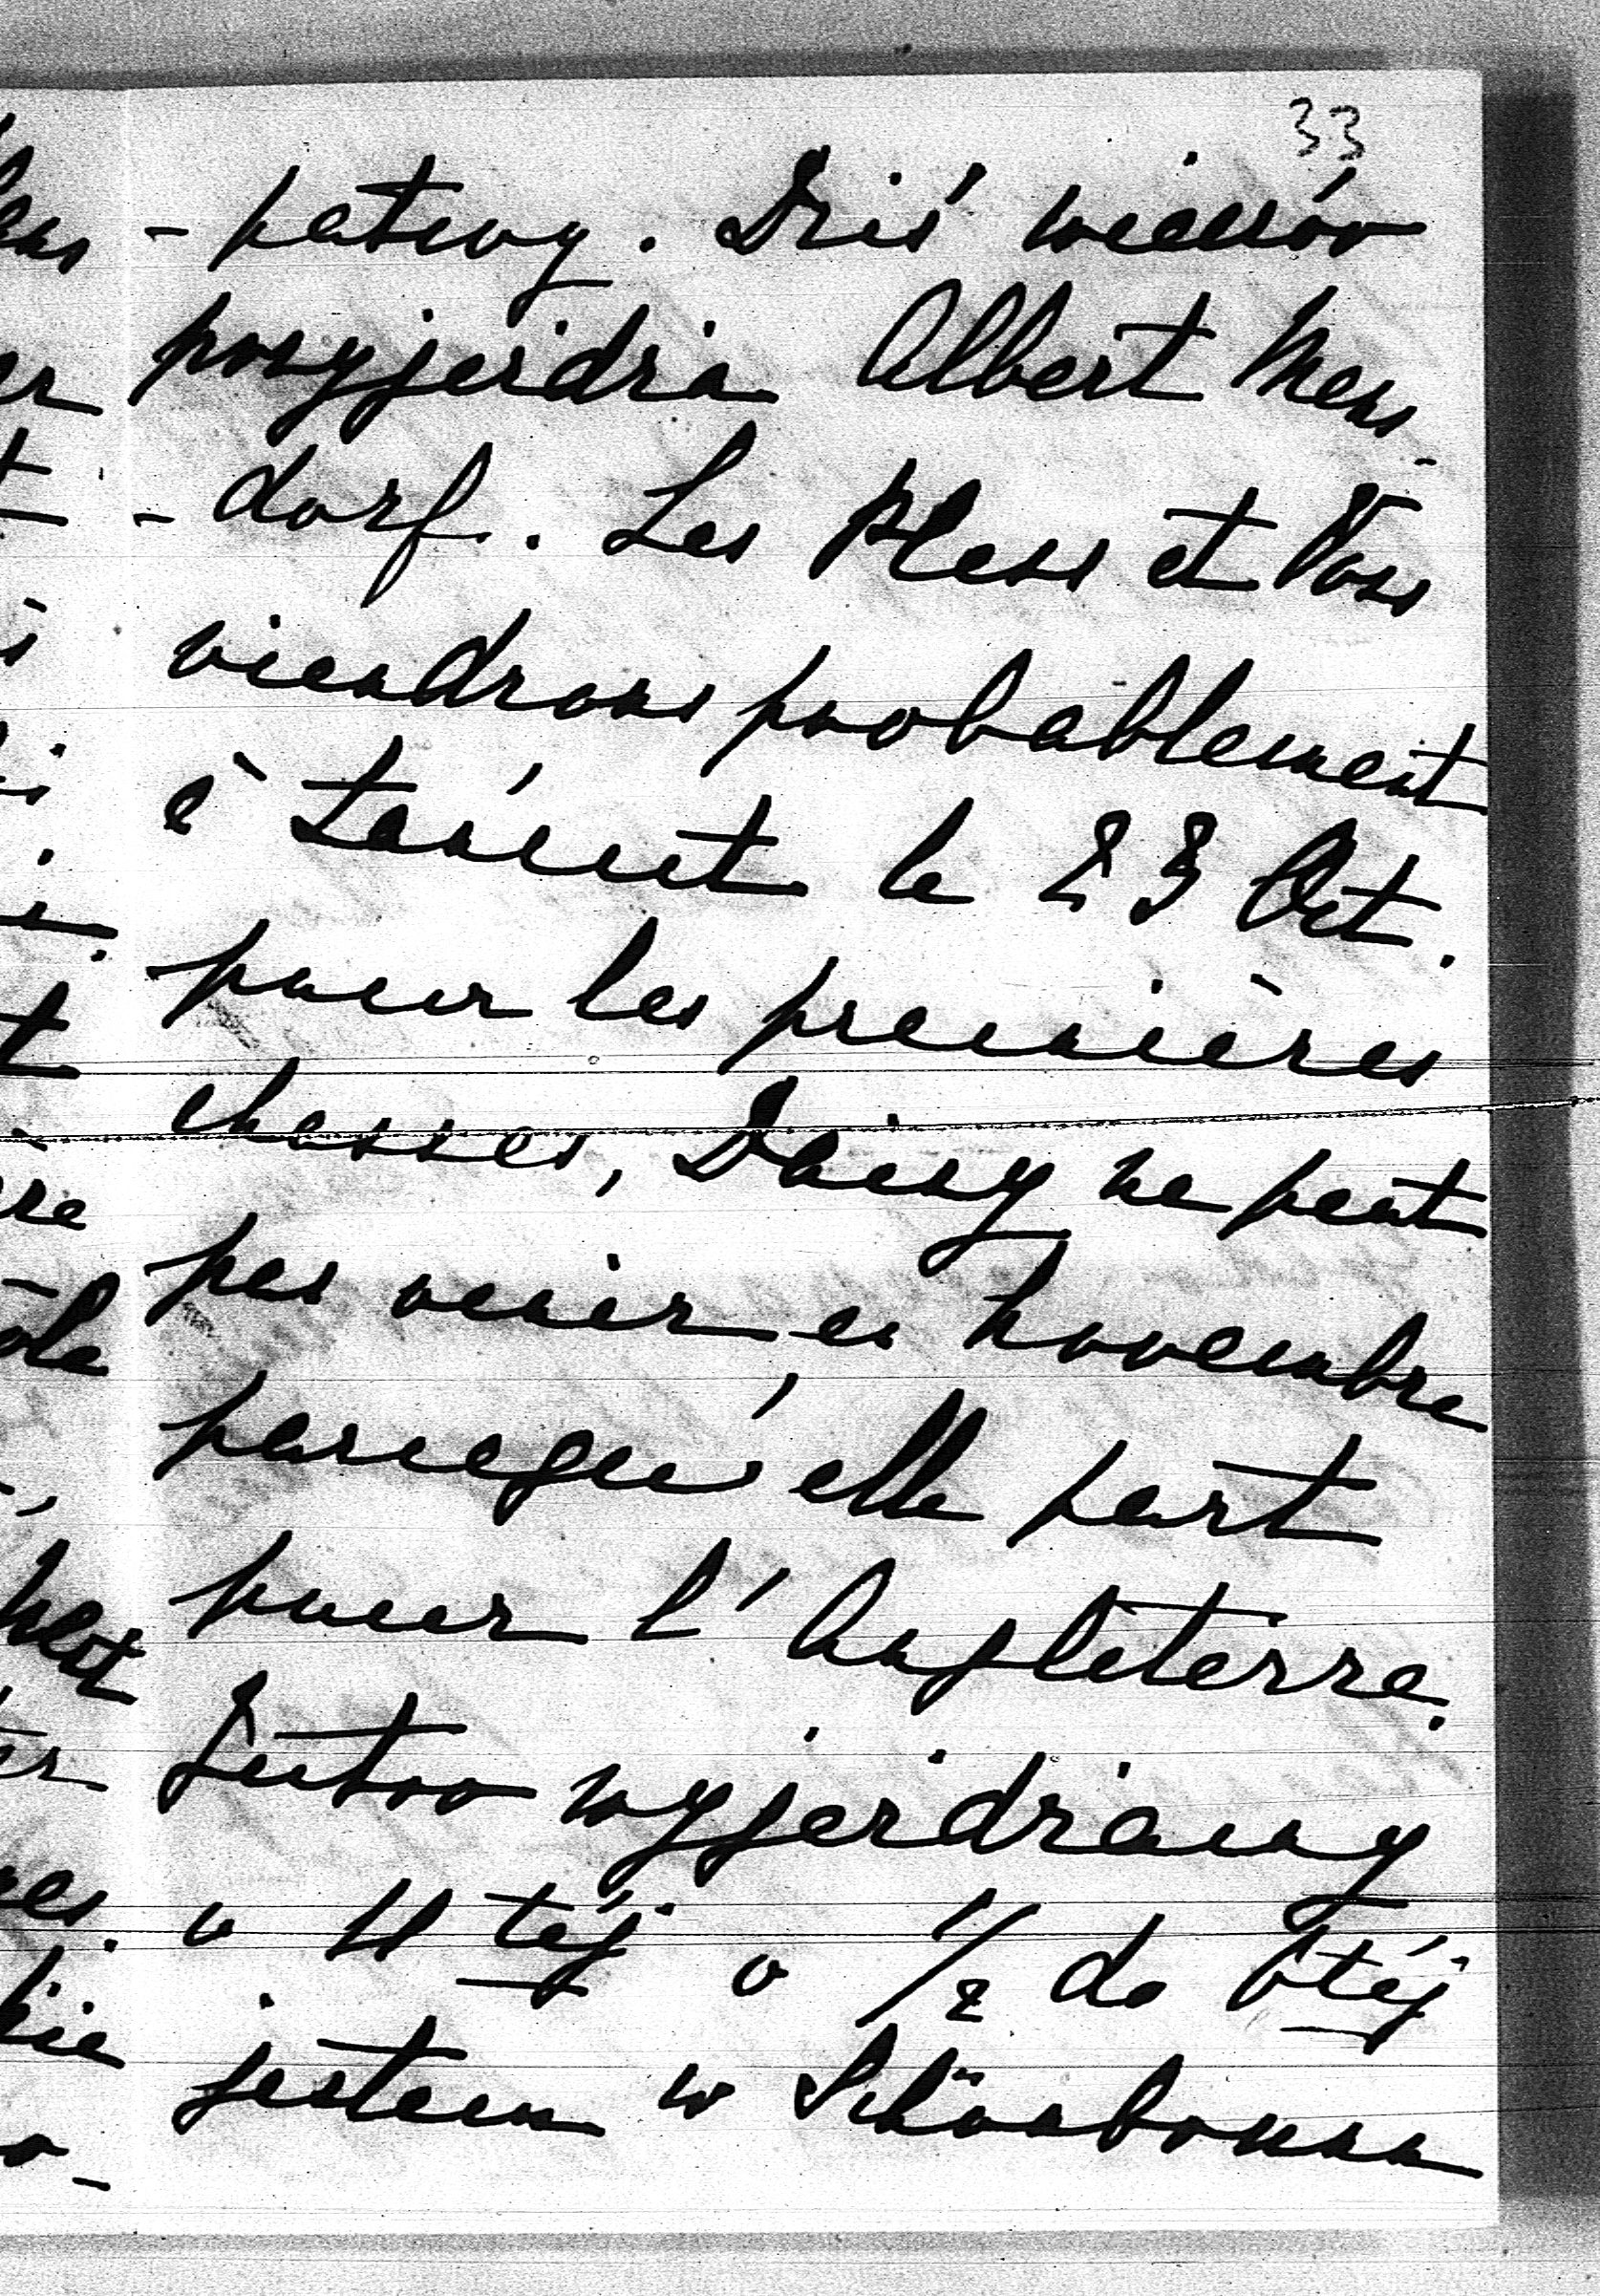 33
- patwy. Dziś wieczór
przyjeżdża Albert Mens-
- dorf. Les Pless et Voss
viendrons probablement
à Łańcut le 23 Oct.
pour les premières
chasses, Daisy ne peut
pas venir en Novembre
parcequ'elle part
pour l'Angleterre.
Jutro wyjeżdżamy
o 11 tej o 1/2 do 6 tej
jestem w Schönbornn